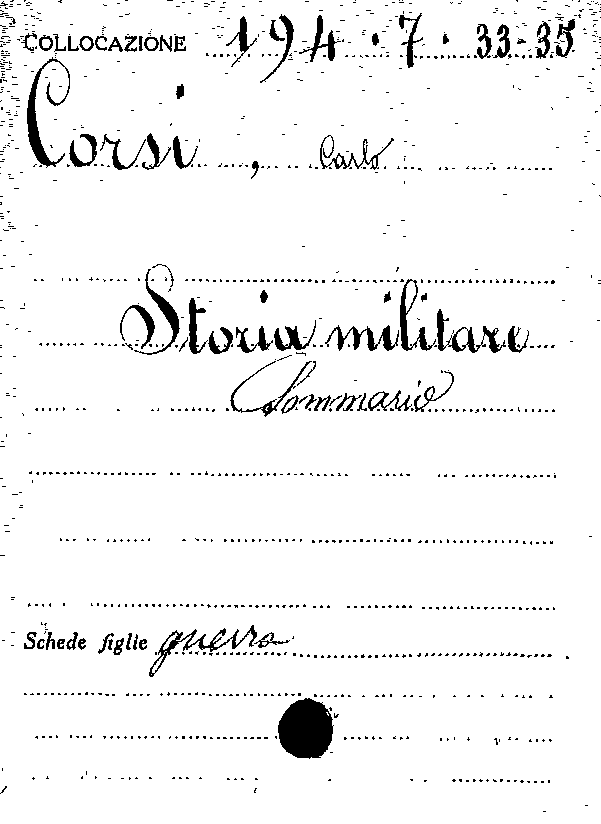 COLLOCAZIONE 194.7.33-35
Corsi, Carlo
Storia militare
Sommario
Schede figlie guerra